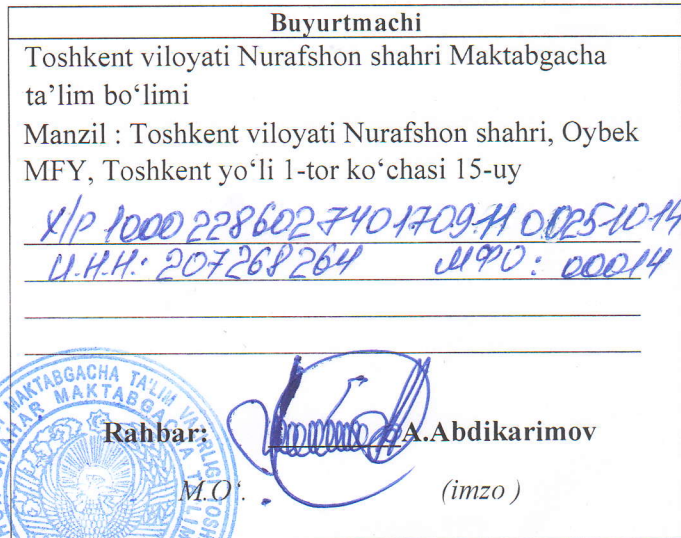 Buyurtmachi
Toshkent viloyati Nurafshon shahri Maktabgacha
ta’lim bo‘limi
Manzil : Toshkent viloyati Nurafshon shahri, Oybek
MFY, Toshkent yo‘li 1-tor ko‘chasi 15-uy
Х/Р 1000228602740170911 00251014
И.Н.Н.: 207268264 МФО: 00014
MAKTABGACHA TA'LIM
MAKTABGACHA TA'LIM
Rahbar: A.Abdikarimov
M.O‘. (imzo )